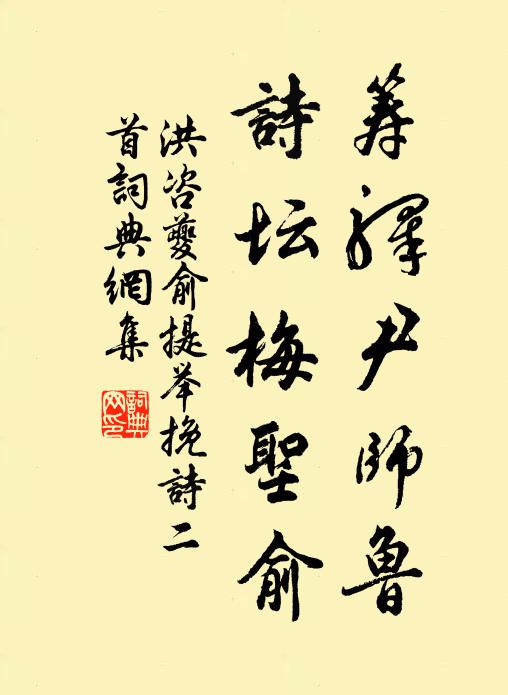 筭釋尹師魯
詩坛梅聖俞
洪咨夔俞提举挽詩二
首詞典網集
詞典网印